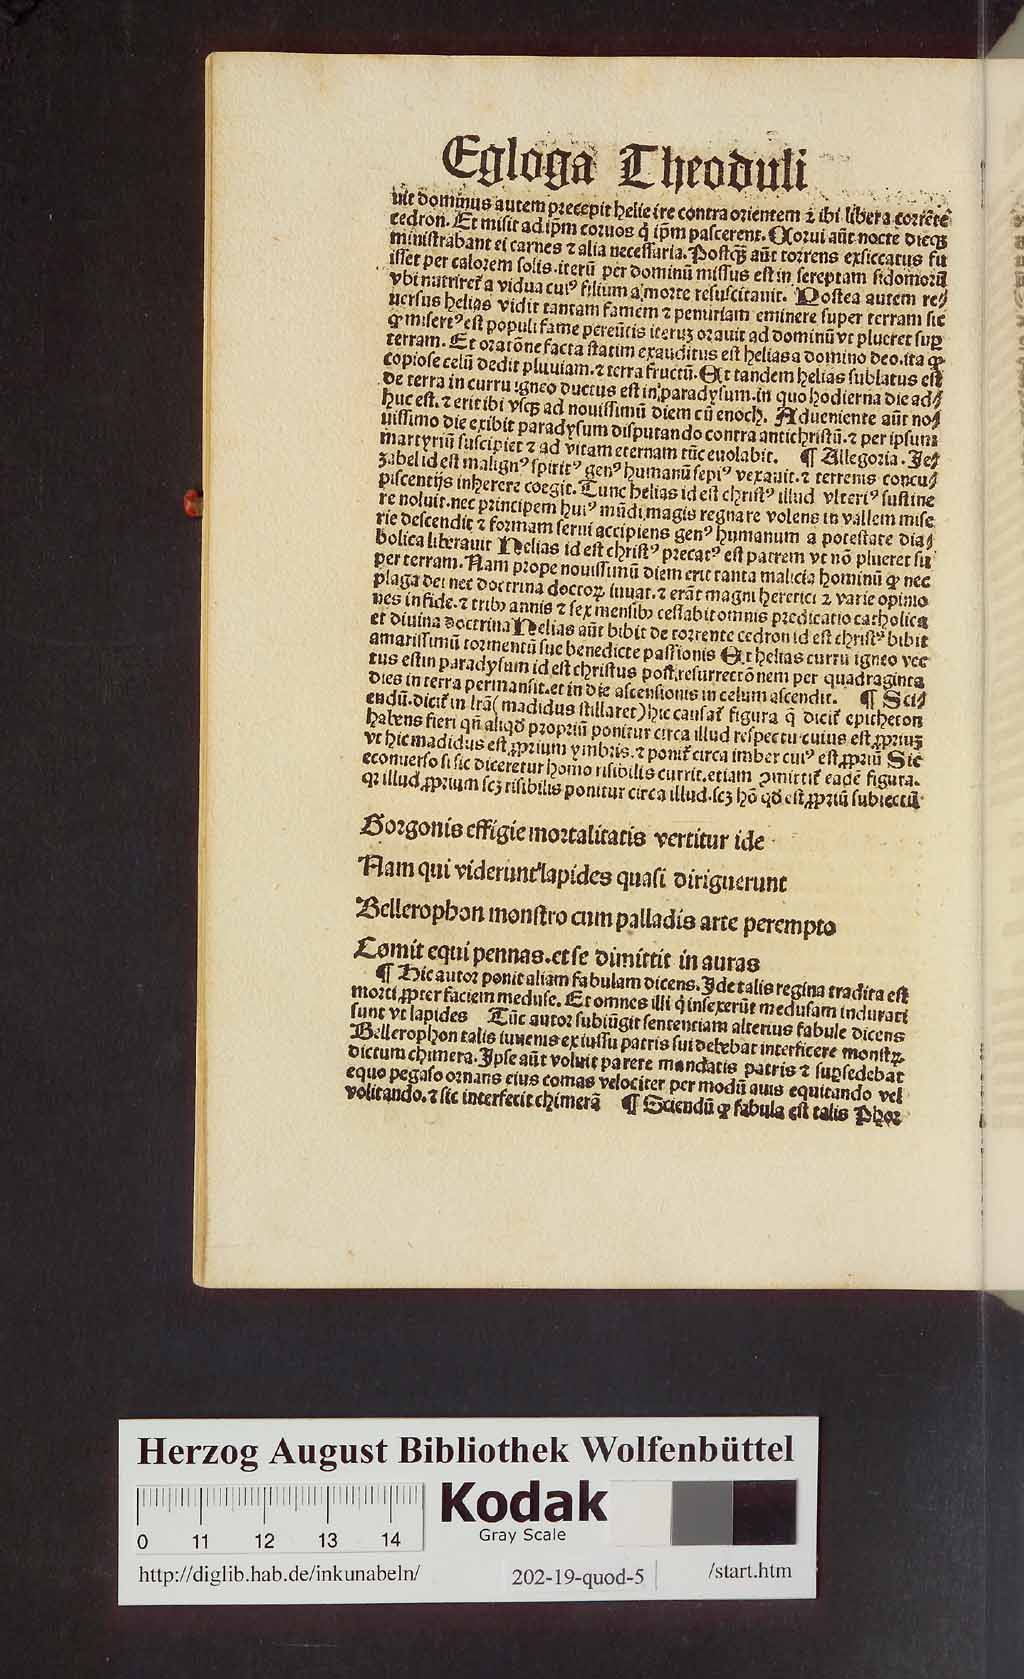 Egloga Theoduli
uit dominus autem precepit helie ire contra orientem ⁊ ibi libera torrētē
cedron. Et misit ad ip̄m coruos q̄ ip̄m pascerent. Corui aūt nocte dieqꝫ
ministrabant ei carnes ⁊ alia necessaria. Postqꝫ aūt torrens exsiccatus fu
isset per calorem solis. iterū per dominū missus est in sereptam sidomorū
vbi nutriret᷑ a vidua cuiꝰ filium a morte resuscitauit. Postea autem re⸗
uersus helias vidit tantam famem ⁊ penuriam eminere super terram sic
ꝙ misertꝰ est populi fame pereūtis iteruꝫ orauit ad dominū vt plueret suꝑ
terram. Et oratōne facta statim exauditus est helias a domino deo. ita ꝙ
copiose celū dedit pluuiam. ⁊ terra fructū. Et tandem helias sublatus est
de terra in curru igneo ductus est in paradysum. in quo hodierna die ad⸗
huc est. ⁊ erit ibi vsqꝫ ad nouissimū diem cū enoch. Adueniente aūt no⸗
uissimo die exibit paradysum disputando contra antichristū. ⁊ per ipsum
martyriū suscipiet ⁊ ad vitam eternam tūc euolabit. ¶ Allegoria. Je⸗
zabel id est malignꝰ spiritꝰ genꝰ humanū sepiꝰ vexauit. ⁊ terrenis concu⸗
piscentijs inherere coegit. Tunc helias id est christꝰ illud vlteriꝰ sustine
re noluit. nec principem huiꝰ mūdi magis regnare volens in vallem mise
rie descendit ⁊ formam serui accipiens genꝰ humanum a potestate dia⸗
bolica liberauit Helias id est christꝰ precatꝰ est patrem vt nō plueret su
per terram. Nam prope nouissimū diem erit tanta malicia hominū ꝙ nec
plaga dei nec doctrina doctoꝝ iuuat. ⁊ erāt magni heretici ⁊ varie opinio
nes in fide. ⁊ tribꝰ annis ⁊ sex mensibꝰ cessabit omnis predicatio catholica
et diuina doctrina Helias aūt bibit de torrente cedron id est christꝰ bibit
amarissimū tormentū sue benedicte passionis Et helias curru igneo vec
tus est in paradysum id est christus post resurrectōnem per quadraginta
dies in terra permansit. et in die ascensionis in celum ascendit. ¶ Sci⸗
endū. dicit᷑ in lr̄a (madidus stillaret) hic causat᷑ figura q̄ dicit᷑ epitheton
habens fieri qn̄ aliqd̄ propriū ponitur circa illud respectu cuius est ꝓpriuꝫ
vt hic madidus est ꝓprium ymbris. ⁊ ponit᷑ circa imber cuiꝰ est ꝓpriū Sic
econuerso si sic diceretur homo risibilis currit. etiam ꝯmittit᷑ eadē figura.
qꝛ illud ꝓprium scꝫ risibilis ponitur circa illud. scꝫ hō qd̄ est ꝓpriū subiectū
Gorgonis effigie mortalitatis vertitur ide
Nam qui viderunt lapides quasi diriguerunt
Bellerophon monstro cum palladis arte perempto
Comit equi pennas. et se dimittit in auras
¶ Hic autor ponit aliam fabulam dicens. Ide talis regina tradita est
morti ꝓpter faciem meduse. Et omnes illi q̄ inspexerūt medusam indurati
sunt vt lapides Tūc autor subiūgit sentenciam alterius fabule dicens
Bellerophon talis iuuenis ex iussu patris sui debebat interficere monstꝝ
dictum chimera. Ipse aūt voluit parere mandatis patris ⁊ suꝑsedebat
equo pegaso ornans eius comas velociter per modū auis equitando vel
volitando. ⁊ sic interfecit chimerā ¶ Sciendū ꝙ fabula est talis Phor
Herzog August Bibliothek Wolfenbüttel
0 11 12 13 14
Kodak
Gray Scale
http://diglib.hab.de/inkunabeln/ 202-19-quod-5 /start.htm